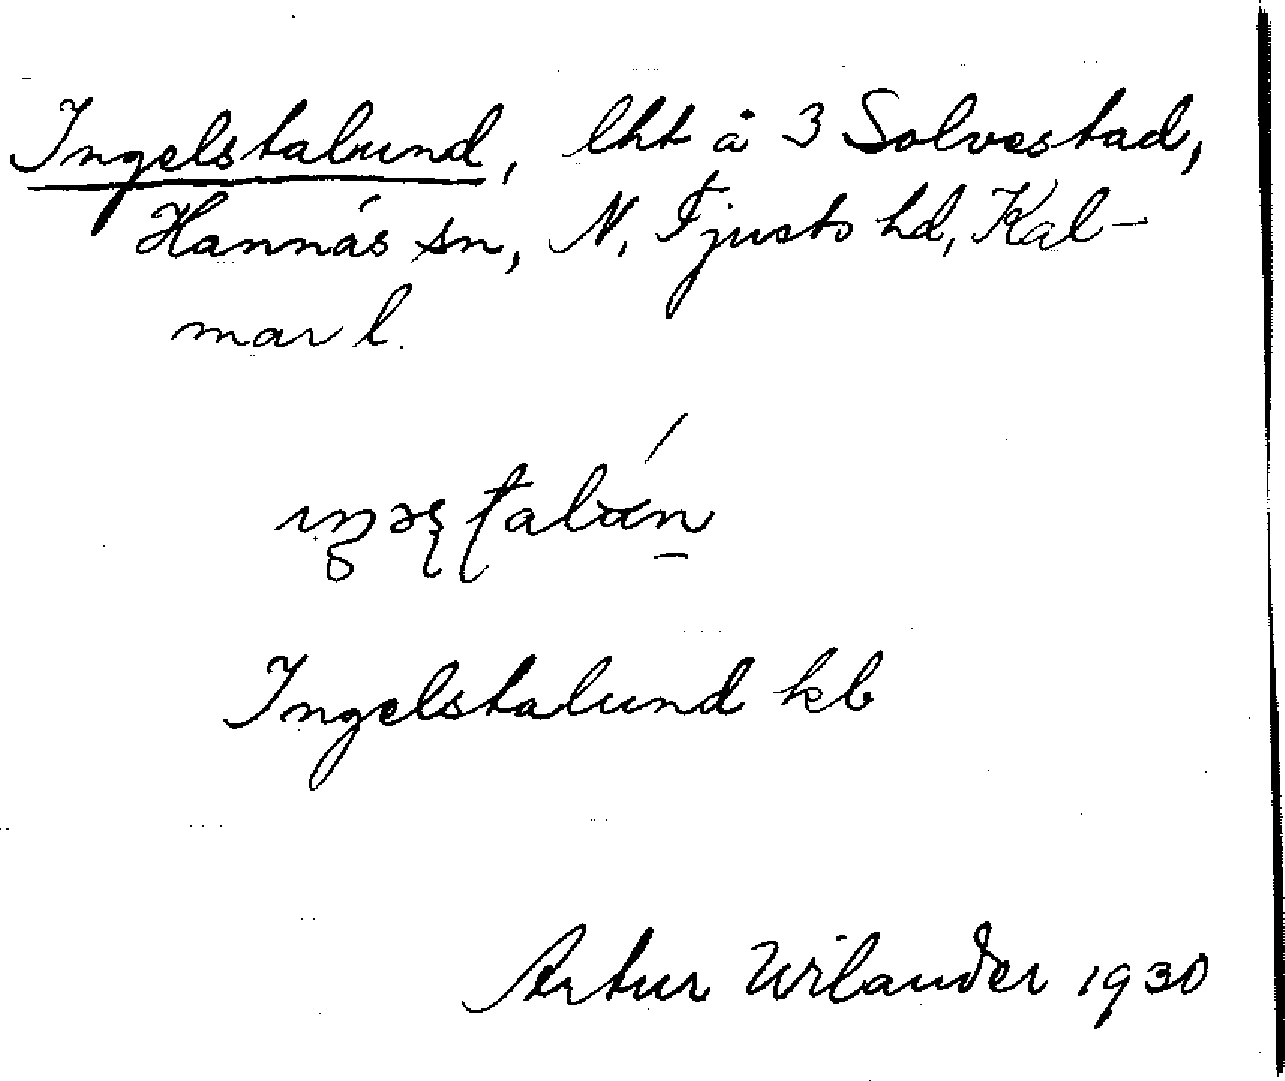 Ingelstalund, lht å 3 Solvestad,
Hannäs sn, N. Tjusts hd, Kal-
mar l.
Ingelstalund kb
Artur Wilander 1930